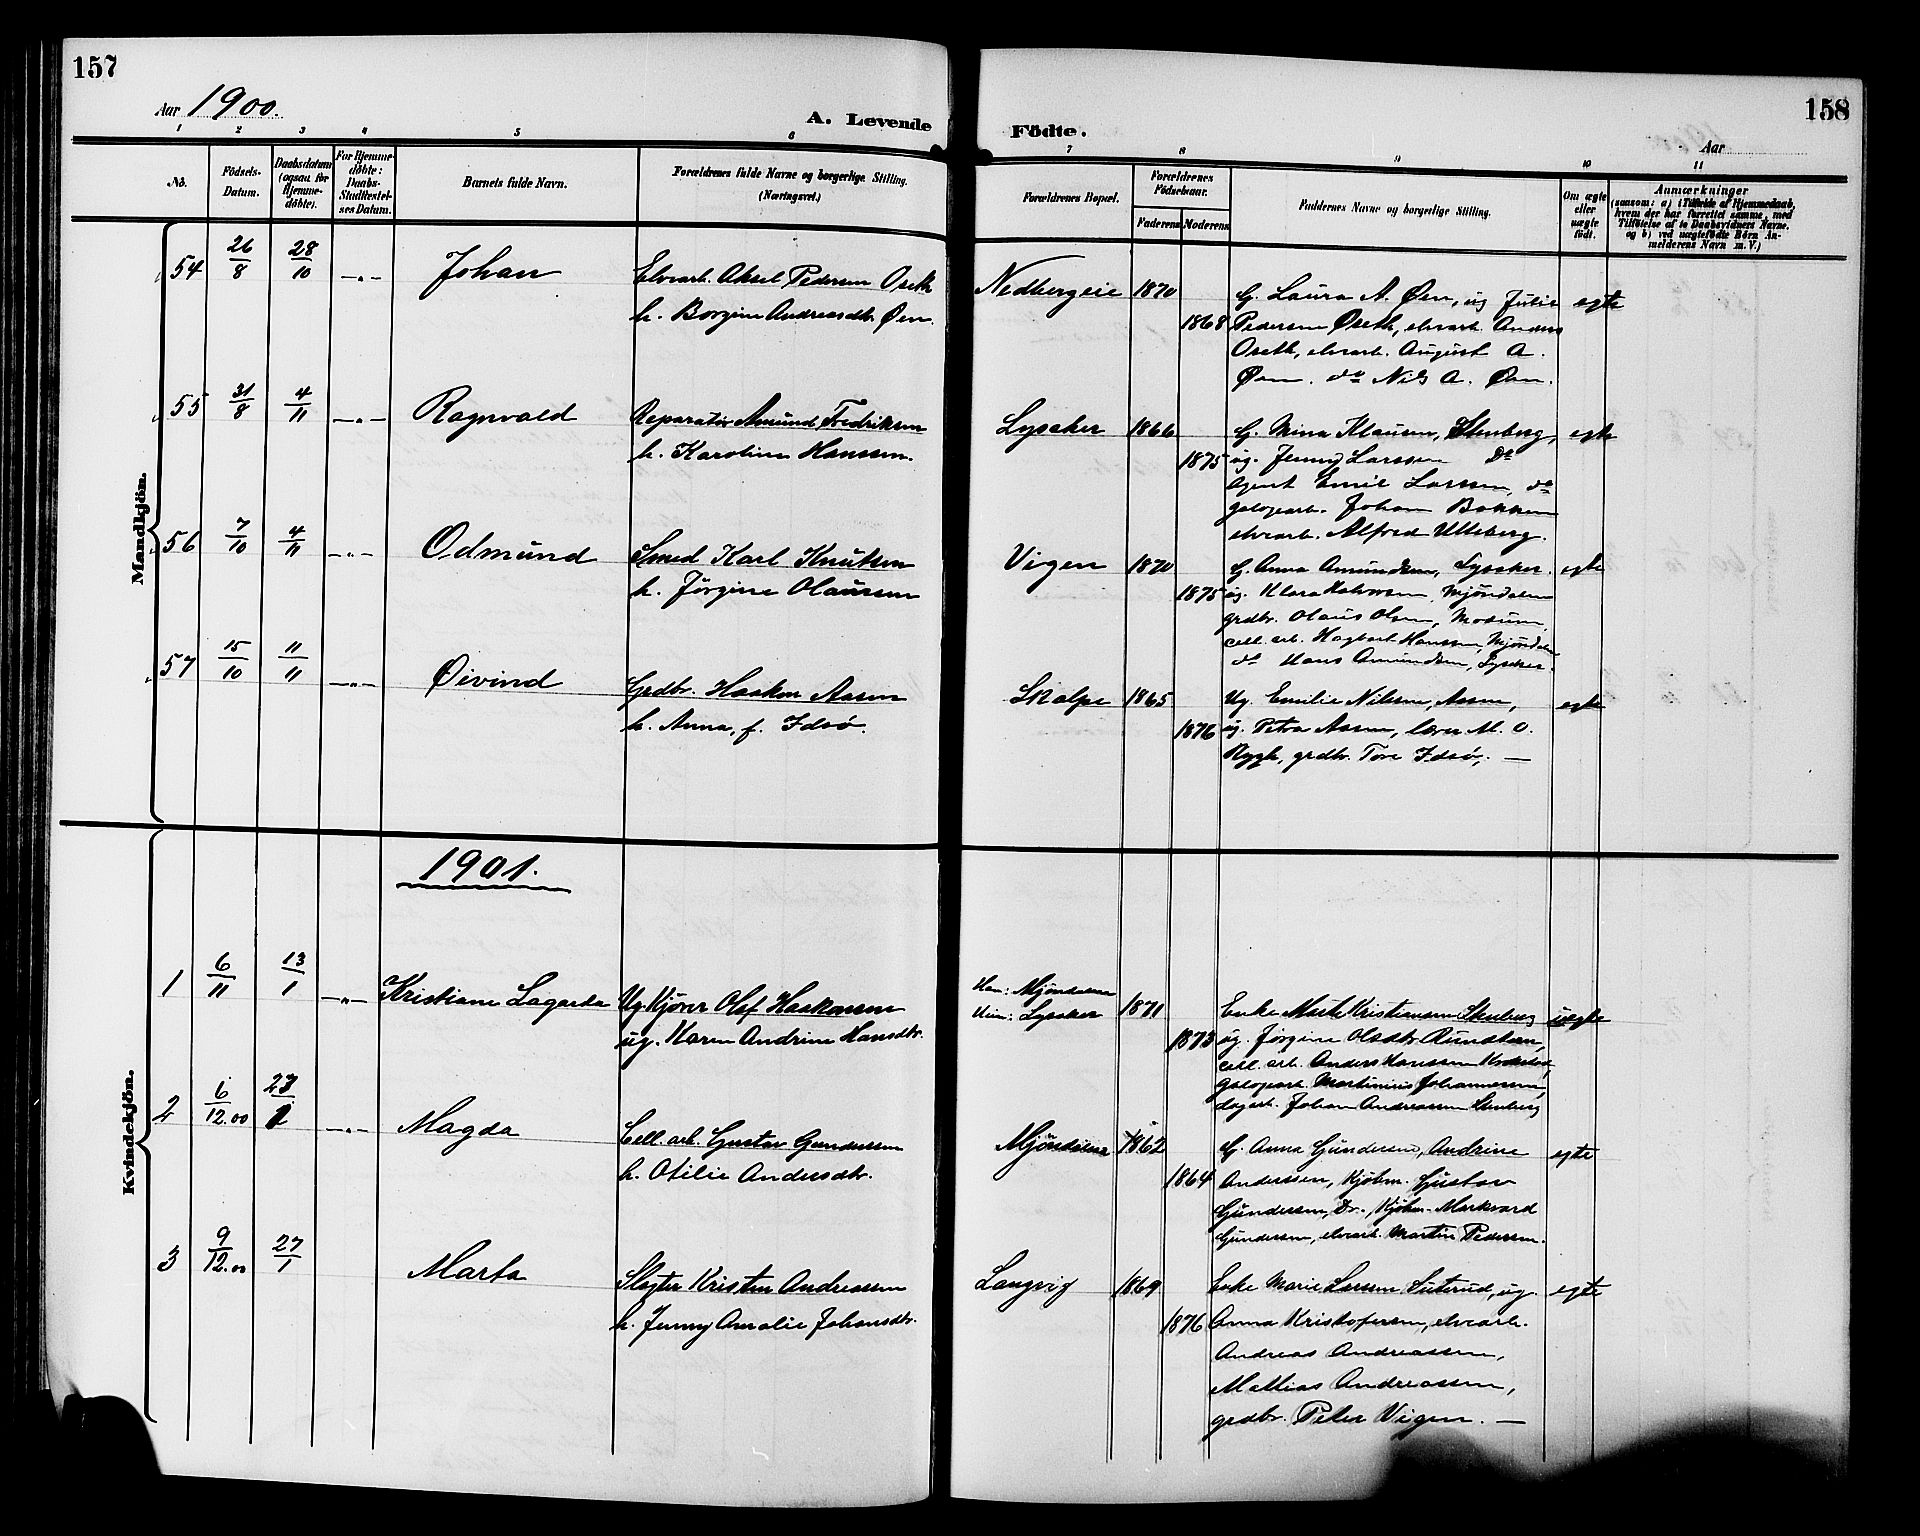 157
Aar 1900.
A. Levende
Födte.
158
Aar
1 2 3 4 5 6 7 8 9 10 11
No.
Födsels-Datum.
Daabsdatum (ogsaa for Hjemme-döbte).
For Hjemme-döbte: Daabs-Stadfæstel-ses Datum.
Barnets fulde Navn.
Forældrenes fulde Navne og borgerlige Stilling.
(Næringsvei.)
Forældrenes Bopæl.
Forældrenes Födselsaar.
Faderens
Moderens
Faddernes Navne og borgerlige Stilling.
Om ægte eller uægte födt.
Anmærkninger
(saasom: a) i Tilfælde af Hjemmedaab, hvem der har forrettet samme, med Tilföielse af to Daabsvidners Navne. og b) ved uægtefödte Börn An-melderens Navn m. V.)
Mandkjön.
54 26/8 28/10 -"- Johan
Elvearb. Aksel Pedersen Oseth
h. Borgine Andreasdtr. Øen.
Nedbergeie 1870 1868
G. Laura A. Øen, ug Julie
Pedersen Øseth, elvearb. Anders
Oseth, elvearb. August A.
Øen. do Nils A. Øen.
egte
55 31/8 4/11 -"- Ragnvald
Reparatør Amund Fredriksen
h. Karoline Hanssen.
Lysaker 1866 1875
G. Mina Klausen, Stenberg,
ug. Jenny Larssen Do
Agent Emil Larssen, do
galopearb. Johan Bakken
elvearb. Alfred Ulleberg.
egte
56 7/10 4/11 -"- Odmund
Smed Karl Knutsen
h. Jørgine Olaussen
Vigen 1870 1875
G. Anna Amundsen, Lysaker.
ug. Klara Halvorsen, Mjöndalen
grdbr. Olaus Olsen, Modum,
cell. arb. Hagbart Hanssen, Mjöndalen
do Hans Amundsen, Lysaker.
egte
57 15/10 11/11 -"- Øivind
Grdbr. Haakon Aasen
h. Anna, f. Idsø.
Skalpe 1865 1876
Ug. Emilie Nilsen, Aasen,
ug. Petra Aasen, lærer M. O.
Rygh, grdbr. Tore Idsø, —
egte
1901.
Kvindekjön.
1 6/11 13/1 -"- Kristiane Lagarda
Ug. Kjører Olaf Haakonsen
ug. Karen Andrine Hansdtr.
Han: Mjöndalen
Hun: Lysaker
1871 1873
Enke Marte Kristiansen Stenberg
ug. Jørgine Olsdtr.
cell. arb. Anders Hanssen
galopearb. Martinius Johannessen,
dagarb. Johan Andreassen Stenberg
uegte
2 6/12.00 27/1 -"- Magda
Cell. arb. Gustav Gundersen
h. Otilie Andersdtr.
Mjöndalen 1862 1864
G. Anna Gundersen, Andrine
Anderssen, Kjöbm. Gustav
Gundersen, Dr., Kjöbm. Markvard
Gundersen, elvearb. Martin Pedersen.
egte
3 9/12.00 27/1 Marta
Slagter Kristen Andreassen
h. Jenny Amalie Johansdtr.
Langvig 1869 1876
Enke Marie Larssen Suterud, ug
Anna Kristofersen, elvearb.
Andreas Andreassen,
Mathias Andreassen,
grdbr. Peter Vigen. —
egte